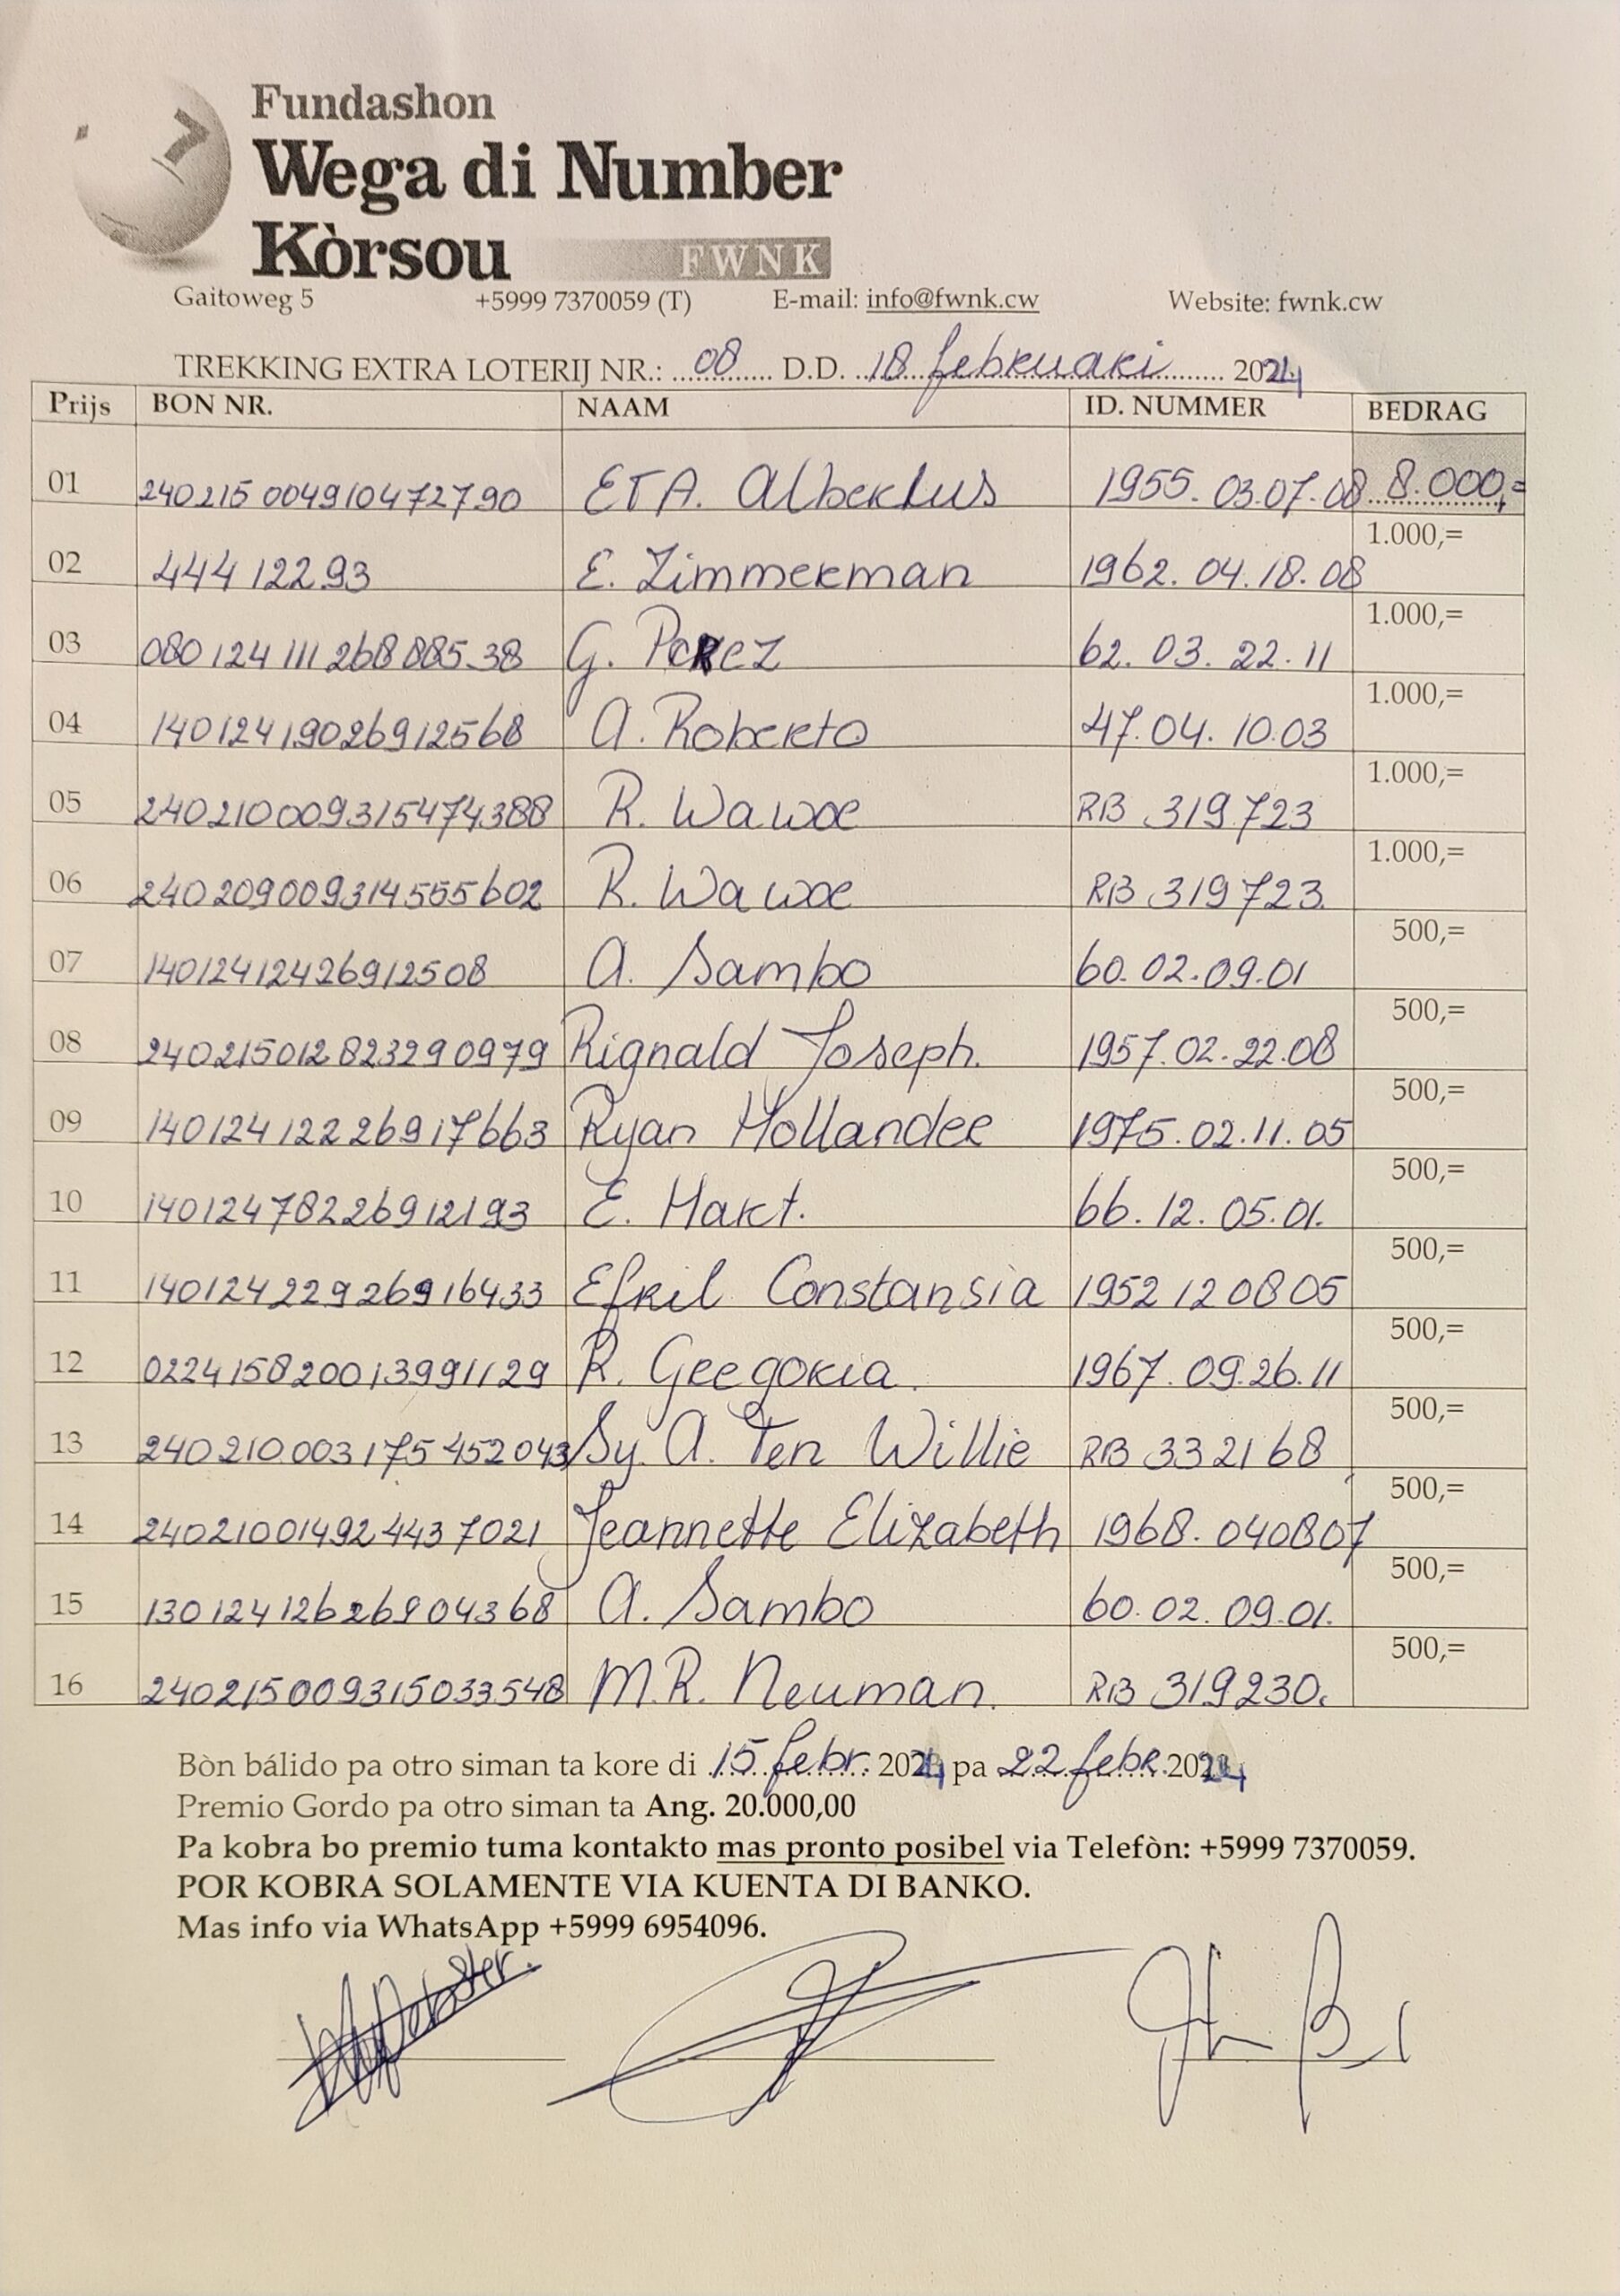 7
Fundashon
Wega di Number
Kòrsou FWNK
Gaitoweg 5 +5999 7370059 (T) E-mail: info@fwnk.cw Website: fwnk.cw
TREKKING EXTRA LOTERIJ NR.: 08 D.D. 18 februari 2024
Prijs BON NR. NAAM ID. NUMMER BEDRAG
01 240215004910472790 ETA. Albertus 1955.03.07.08 8.000,=
02 44412293 E. Zimmerman 1962.04.18.08 1.000,=
03 080124111268885.38 G. Perez 62.03.22.11 1.000,=
04 14012419026912568 A. Roberto 47.04.10.03 1.000,=
05 2402100093154743​88 R. Wawoe RB 319723 1.000,=
06 240209009314555602 R. Wawoe RB 319723 1.000,=
07 14012412426912508 A. Sambo 60.02.09.01 500,=
08 240215012823290979 Rignald Joseph. 1957.02.22.08 500,=
09 14012412226917663 Ryan Hollander 1975.02.11.05 500,=
10 14012478226912193 E. Hart. 66.12.05.01. 500,=
11 14012422926916433 Efril Constansia 1952 12 08 05 500,=
12 022415820013991129 R. Gregoria. 1967.09.26.11 500,=
13 240210003175452043 Sy. A. Ten Willie RB 332168 500,=
14 240210014924437021 Jeannette Elizabeth 1968.040807 500,=
15 13012412626904368 A. Sambo 60.02.09.01. 500,=
16 240215009315033548 M.R. Neuman. RB 319230. 500,=
Bòn bálido pa otro siman ta kore di 15 febr. 2024 pa 22 febr. 2024
Premio Gordo pa otro siman ta Ang. 20.000,00
Pa kobra bo premio tuma kontakto mas pronto posibel via Telefòn: +5999 7370059.
POR KOBRA SOLAMENTE VIA KUENTA DI BANKO.
Mas info via WhatsApp +5999 6954096.